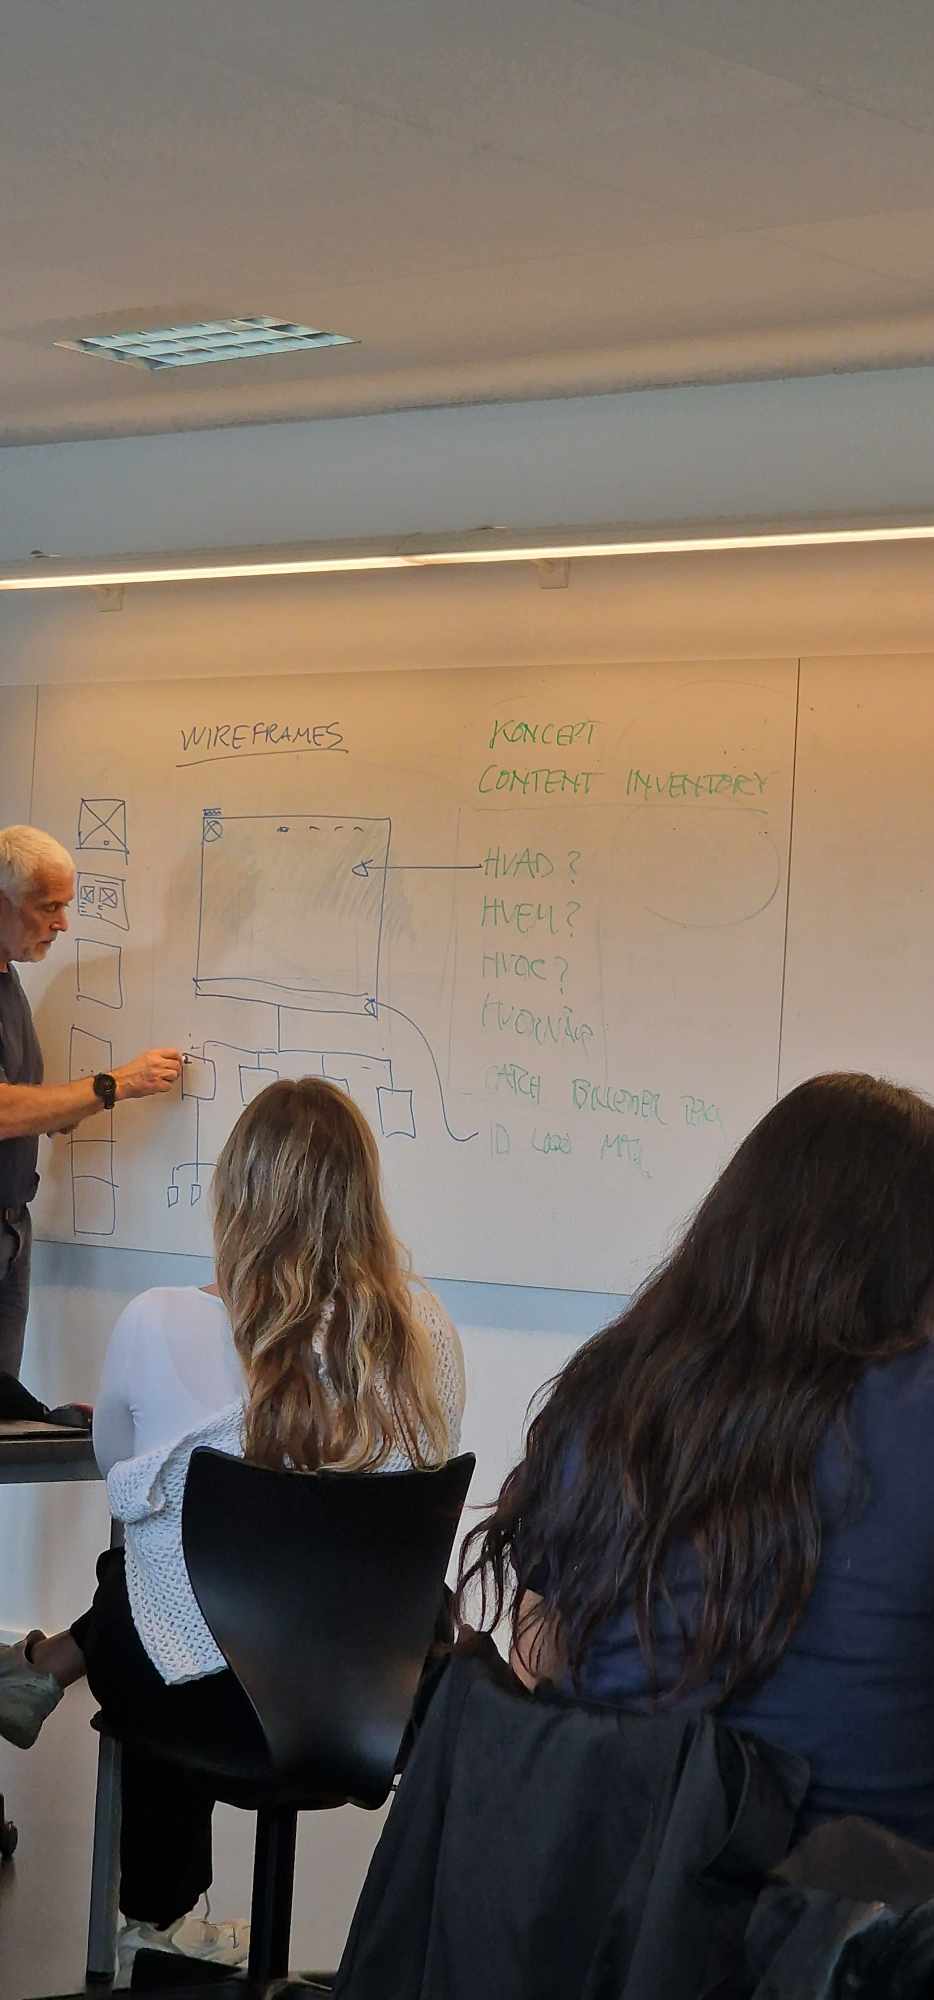 WIREFRAMES
KONCEPT
CONTENT INVENTORY
HVAD?
HVEM?
HVOR?
HVORNÅR
CATCH BILLEDER
ID LOGO